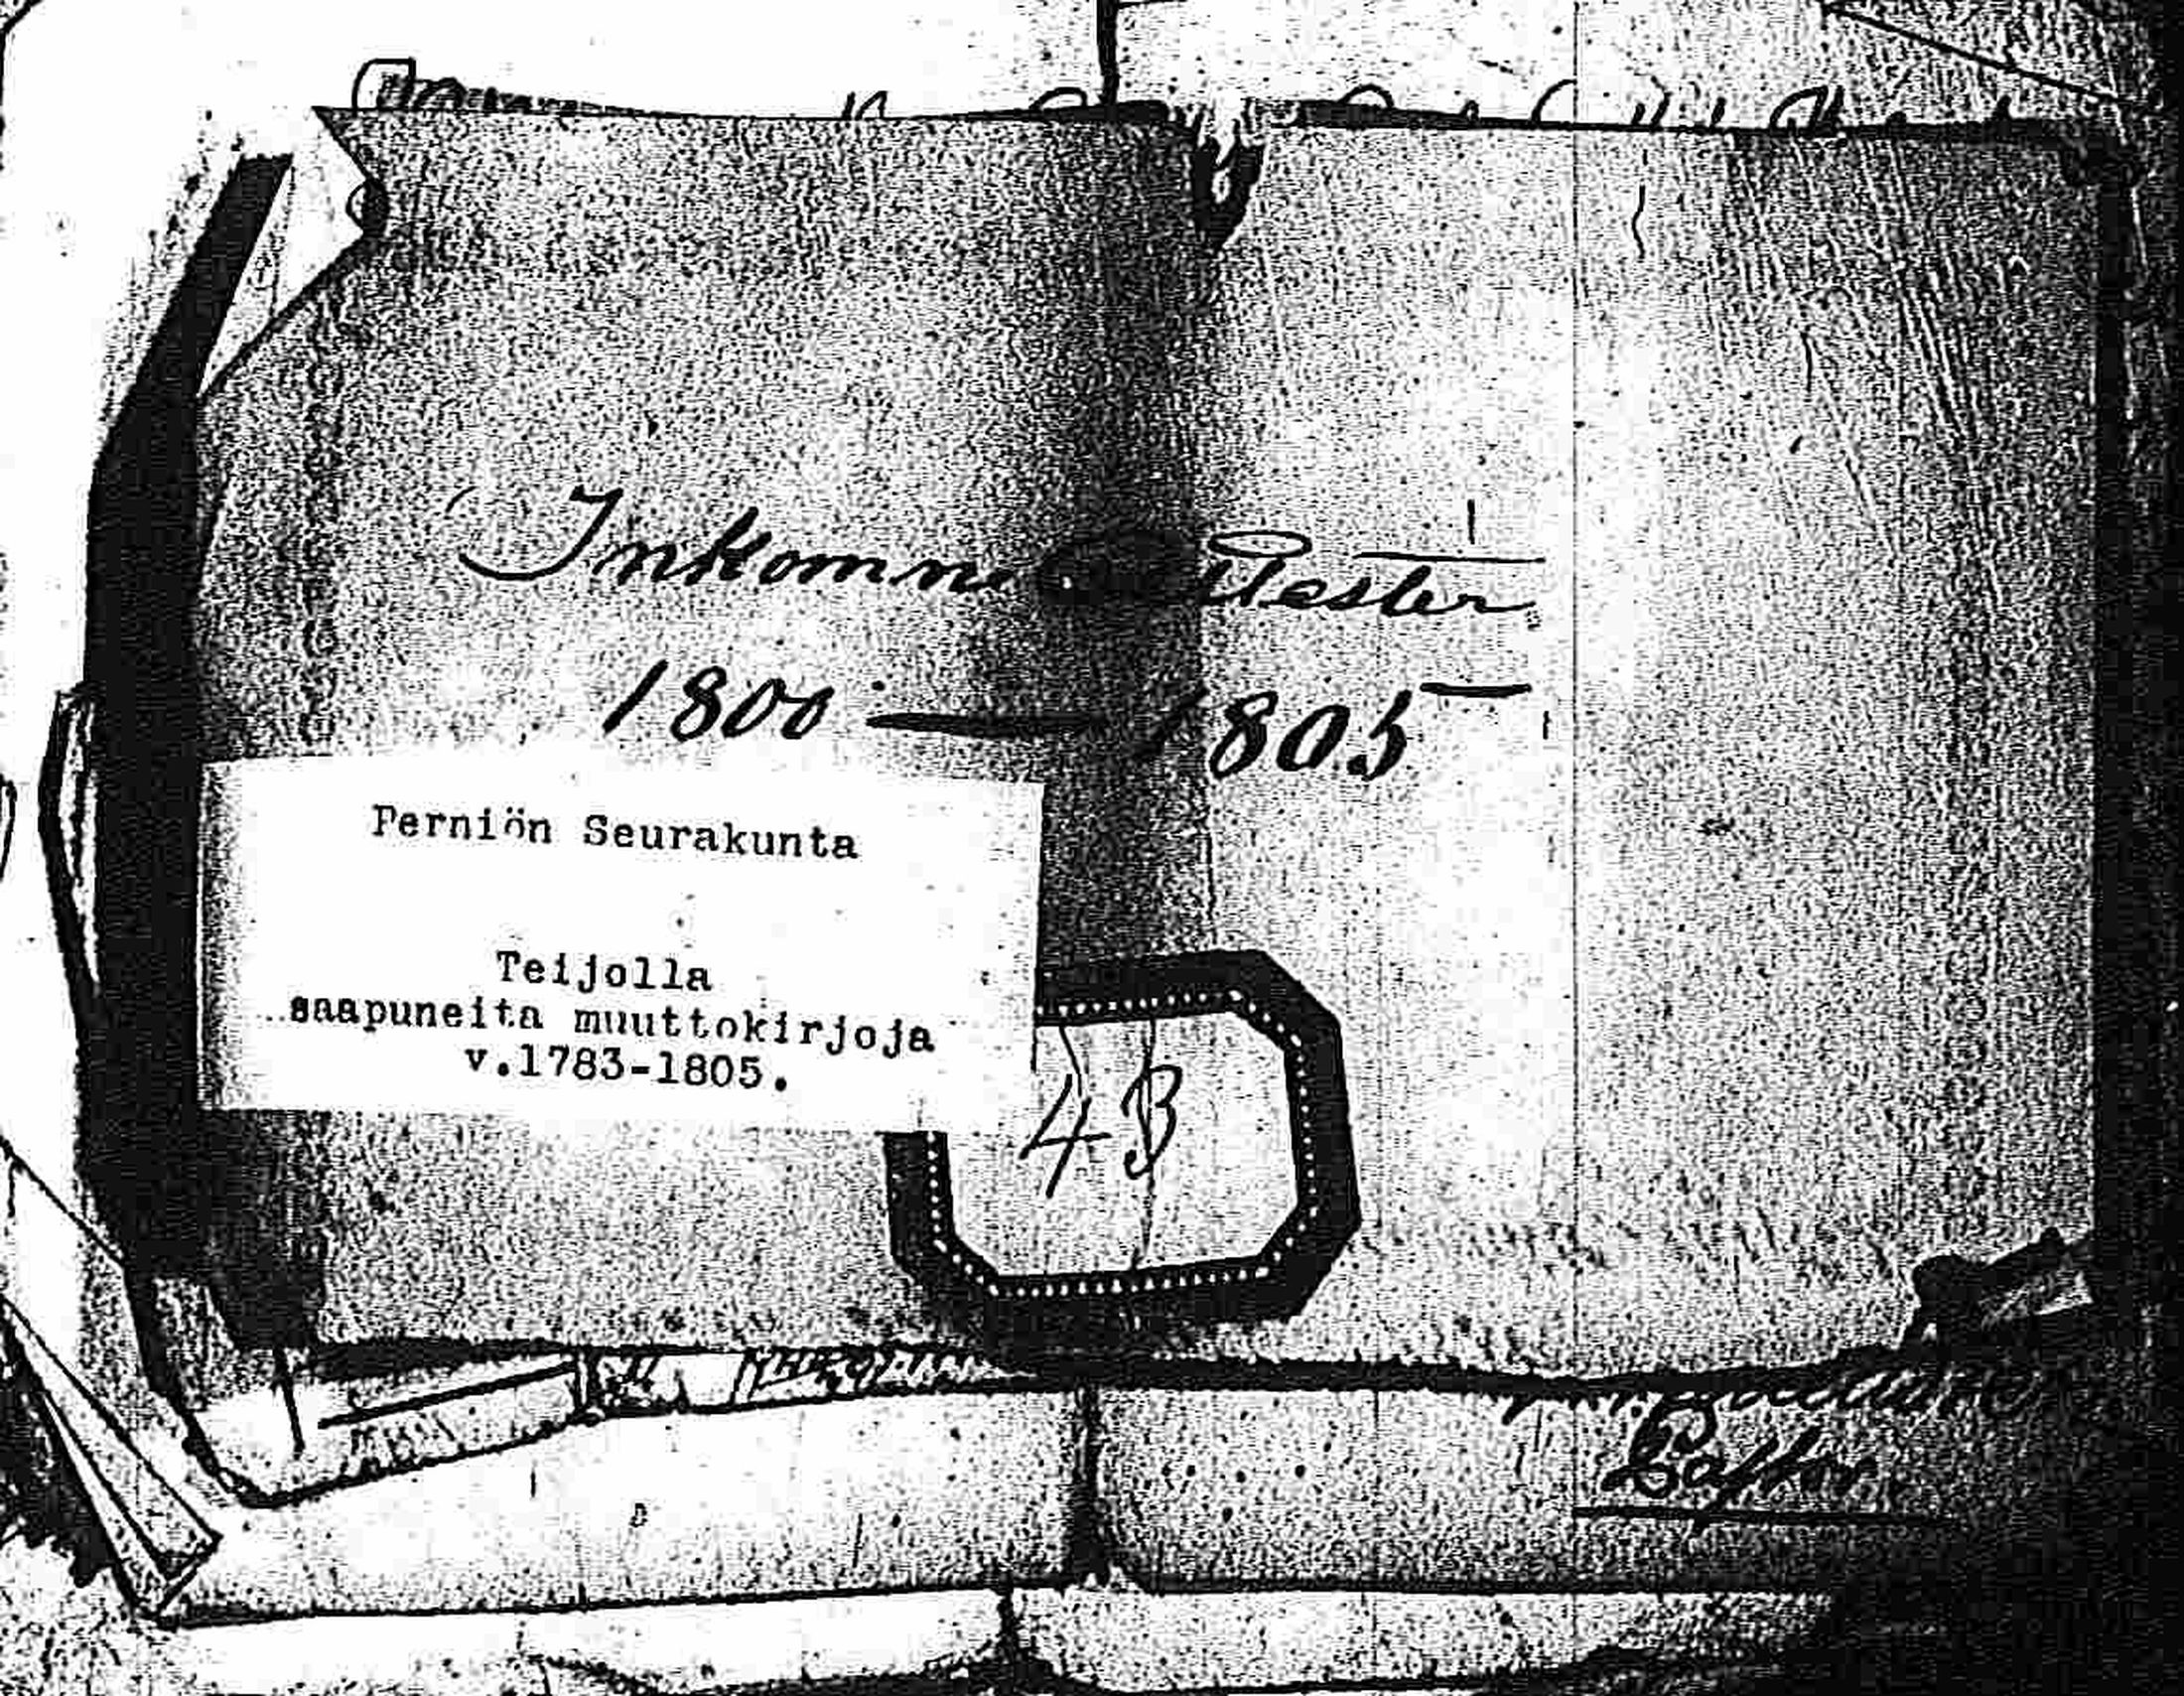 Inkomne Attester
1800 — 1805
Perniön Seurakunta
Teijolla
saapuneita muuttokirjoja
v.1783-1805.
4B
Pastor